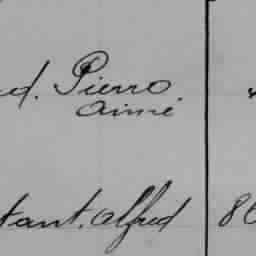 ed. Pierro
Aimé.
tant. Alfred 86